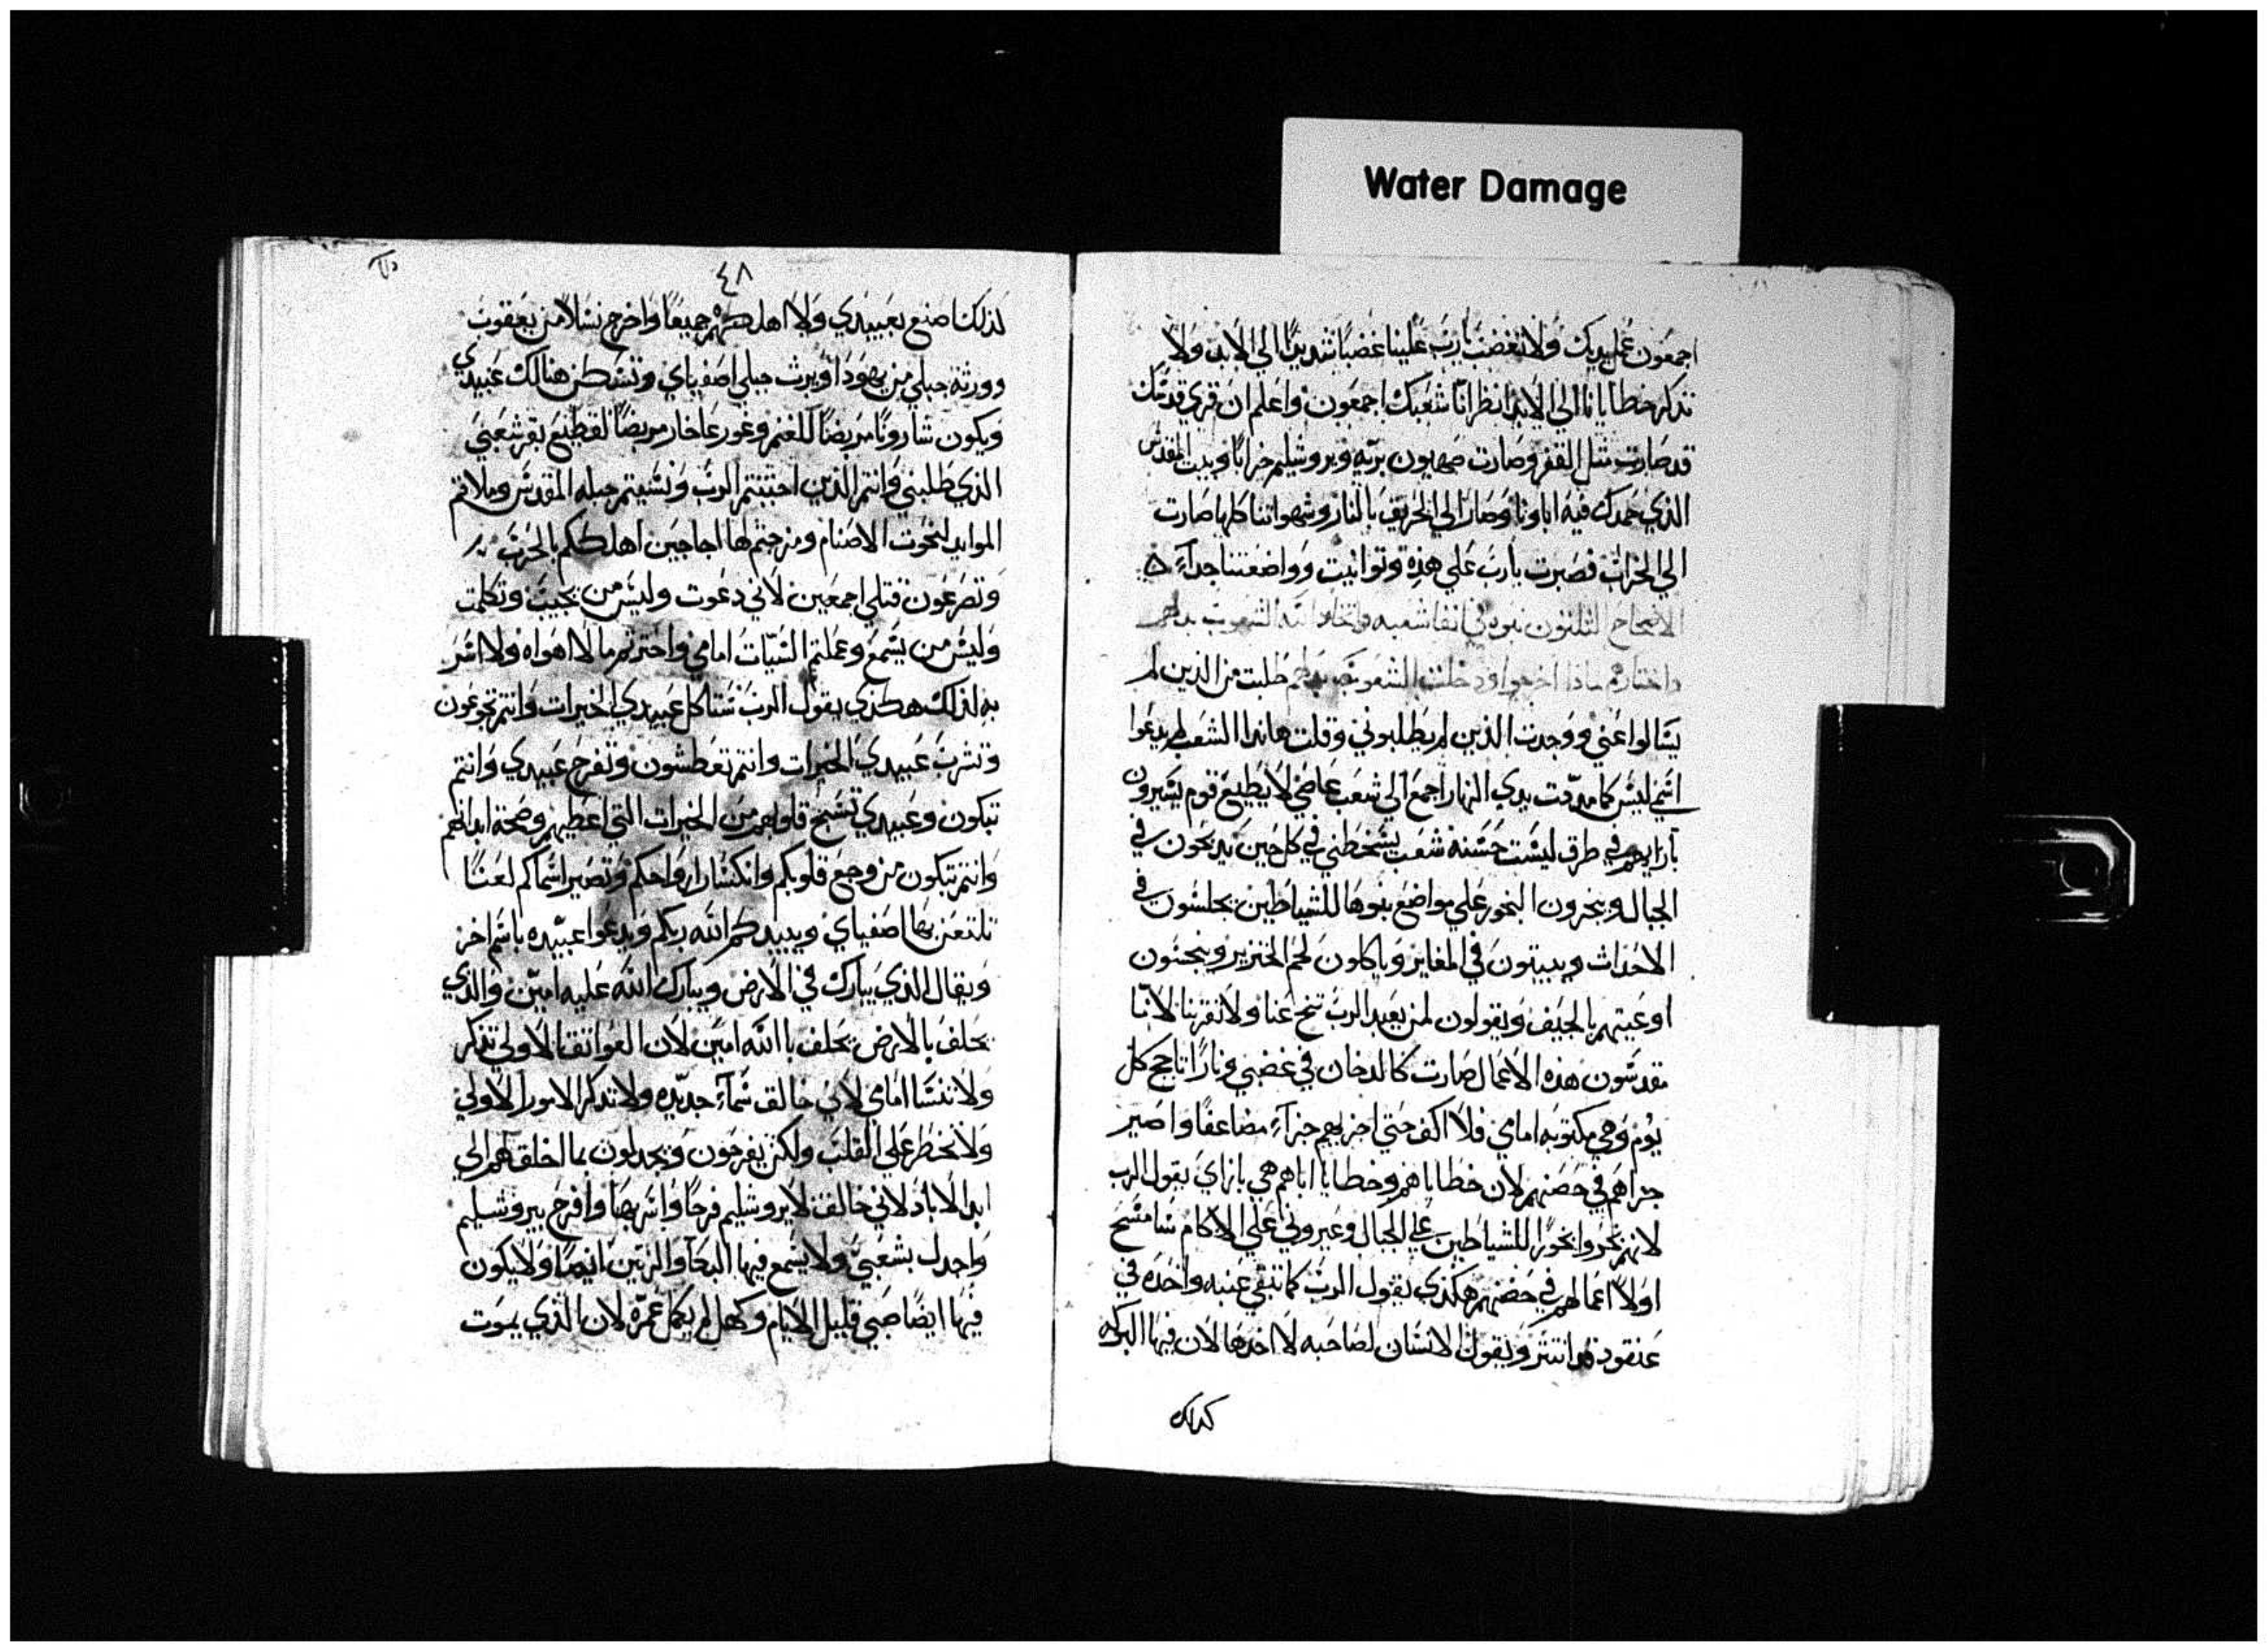 Water Damage
اجمعون عمل يديك ولا تغضب يارب علينا غضبًا شديدًا الي الابد ولا
تذكر خطايانا الي الابد انظر انّا شعبك اجمعون واعلم ان قري قدسك
قد صارت مثل القفر وصارت صهيون بريّه ويروشليم خرابًا وبيت المقدس
الذي حمدك فيه اباونا وصار الي الحريق بالنار وشهواتنا كلها صارت
الي الخراب فصبرت يارب علي هذه وتوانيت وواضعتنا جداً
الاصحاح الثلثون نبوه في انفا شعبه واتخاد الله الشعوب بدلهم
واختارهم ماذا اخرجوا ودخلت الشعوب بدلهم طلبت من الذين لم
يسالوا عني ووجدت الذين لم يطلبوني وقلت هانذا الشعب لم يدعوا
اسمي ليس كما مددت يدي النهار اجمع الي شعب عاصي لا يطيع قوم يسيرون
بارايهم في طرق ليست حسنه شعب يسخطني في كل حين يدبحون في
الجبال ويبخرون البخور علي مواضع بنوها للشياطين يجلسون في
الاحداث ويبيتون في المغاير وياكلون لحم الخنزير وينجسون
اوعيتهم بالجيف ويقولون لمن يعبد الرب تنح عنا ولا تقربنا لانّا
مقدسون هذه الاعمال صارت كالدخان في غضبي ونارًا تاجج كل
يوم وهي مكتوبه امامي فلا اكف حتي اجزيهم جزآء مضاعفًا واصير
جزاهم في حضنهم لان خطاياهم وخطايا اباهم هي بازاي يقول الرب
لانهم بخروا بخورًا للشياطين علي الجبال وعيروني علي الاكام سامسح
اولًا اعمالهم في حضنهم هكذي يقول الرب كما تبقي عنبه واحده في
عنقود قد انتثر ويقول الانسان لصاحبه لا اخدها لان فيها البركه
كدلك
٤٨
لذلك اصنع بعبيدي ولا اهلكهم جميعًا واخرج نسلًا من يعقوب
وورثة جبلي من يهودا ويرث جبلي اصفياي وتسكن هنالك عبيدي
ويكون شارونا مربضًا للغنم وغور عاخار مربضًا لقطيع بقر شعبي
الذي طلبني وانتم الذين اجتنبتم الرب ونسيتم جبله المقدس وملاتم
الموايد لنخوت الاصنام ومزجتم لها اجاجين اهلككم بالحرب
وتصرعون قتلي اجمعين لاني دعوت وليس من يجيب وتكلمت
وليس من يسمع وعملتم السيّات امامي واخترتم ما لا اهواه ولا اسر
به لذلك هكذي يقول الرب ستاكل عبيدي الخيرات وانتم تجوعون
وتشرب عبيدي الخيرات وانتم تعطشون وتفرح عبيدي وانتم
تبكون وعبيدي تسبح قلوبهم من الخيرات التي اعطيهم وصحة ابدانهم
وانتم تبكون من وجع قلوبكم وانكسار ارواحكم وتصير اسماكم لعنًا
تلتعن بها اصفياي ويبيدكم الله ربكم ويدعوا عبيده باسم اخر
ويقال الذي يبارك في الارض ويبارك الله عليه امين والذي
يحلف بالارض يحلف بالله امين لان العواتق الاولي تذكر
ولا تنسا امامي لاني خالق سمآء جديده ولا تذكر الامور الاولي
ولا تخطر علي القلب ولكن يفرحون ويجدلون بما اخلق لهم الي
ابد الاباد لاني خالق لايروشليم فرحًا واسر بها وافرح بيروشليم
واجدل بشعبي ولا يسمع فيها البكا والرنين ايضًا ولا يكون
فيها ايضًا صبي قليل الايام وكهل لم يكمل عمره لان الذي يموت